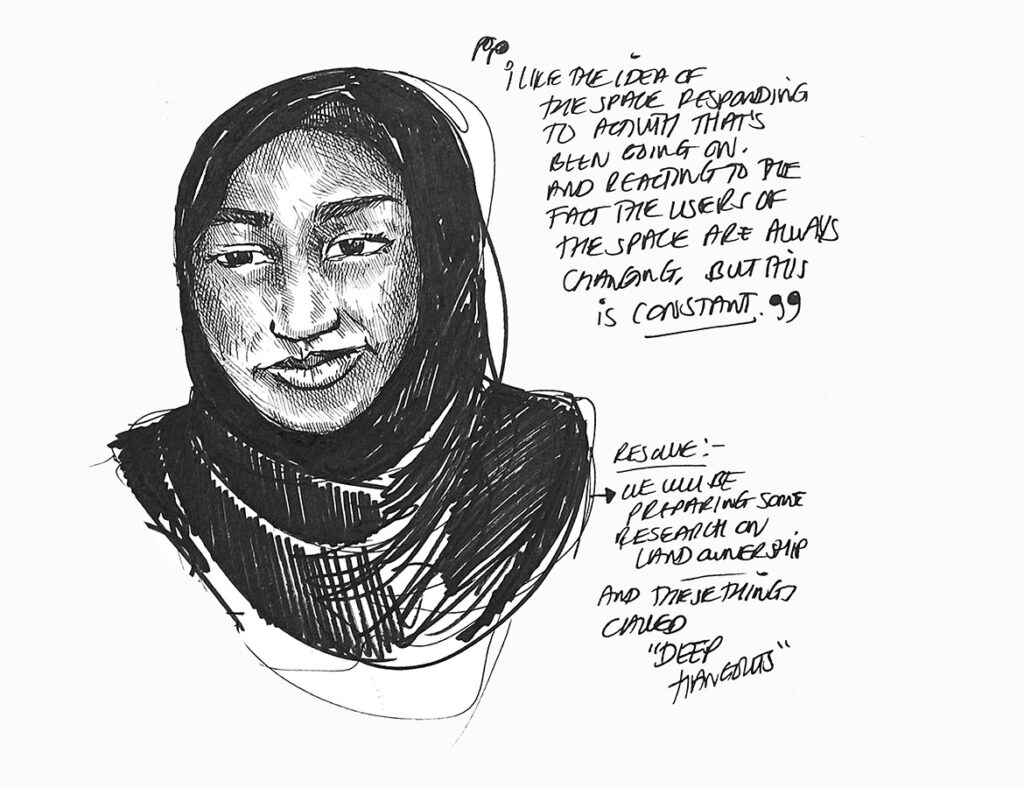 i LIKE THE IDEA OF
THE SPACE RESPONDING
TO ACTIVITY THAT'S
BEEN GOING ON.
AND REACTING TO THE
FACT THE USERS OF
THE SPACE ARE ALWAYS
CHANGING, BUT THIS
is CONSTANT.”
RESOLVE:-
WE WILL BE
PREPARING SOME
RESEARCH ON
LAND OWNERSHIP
AND THESE THINGS
CALLED
"DEEP
HANGOUTS"